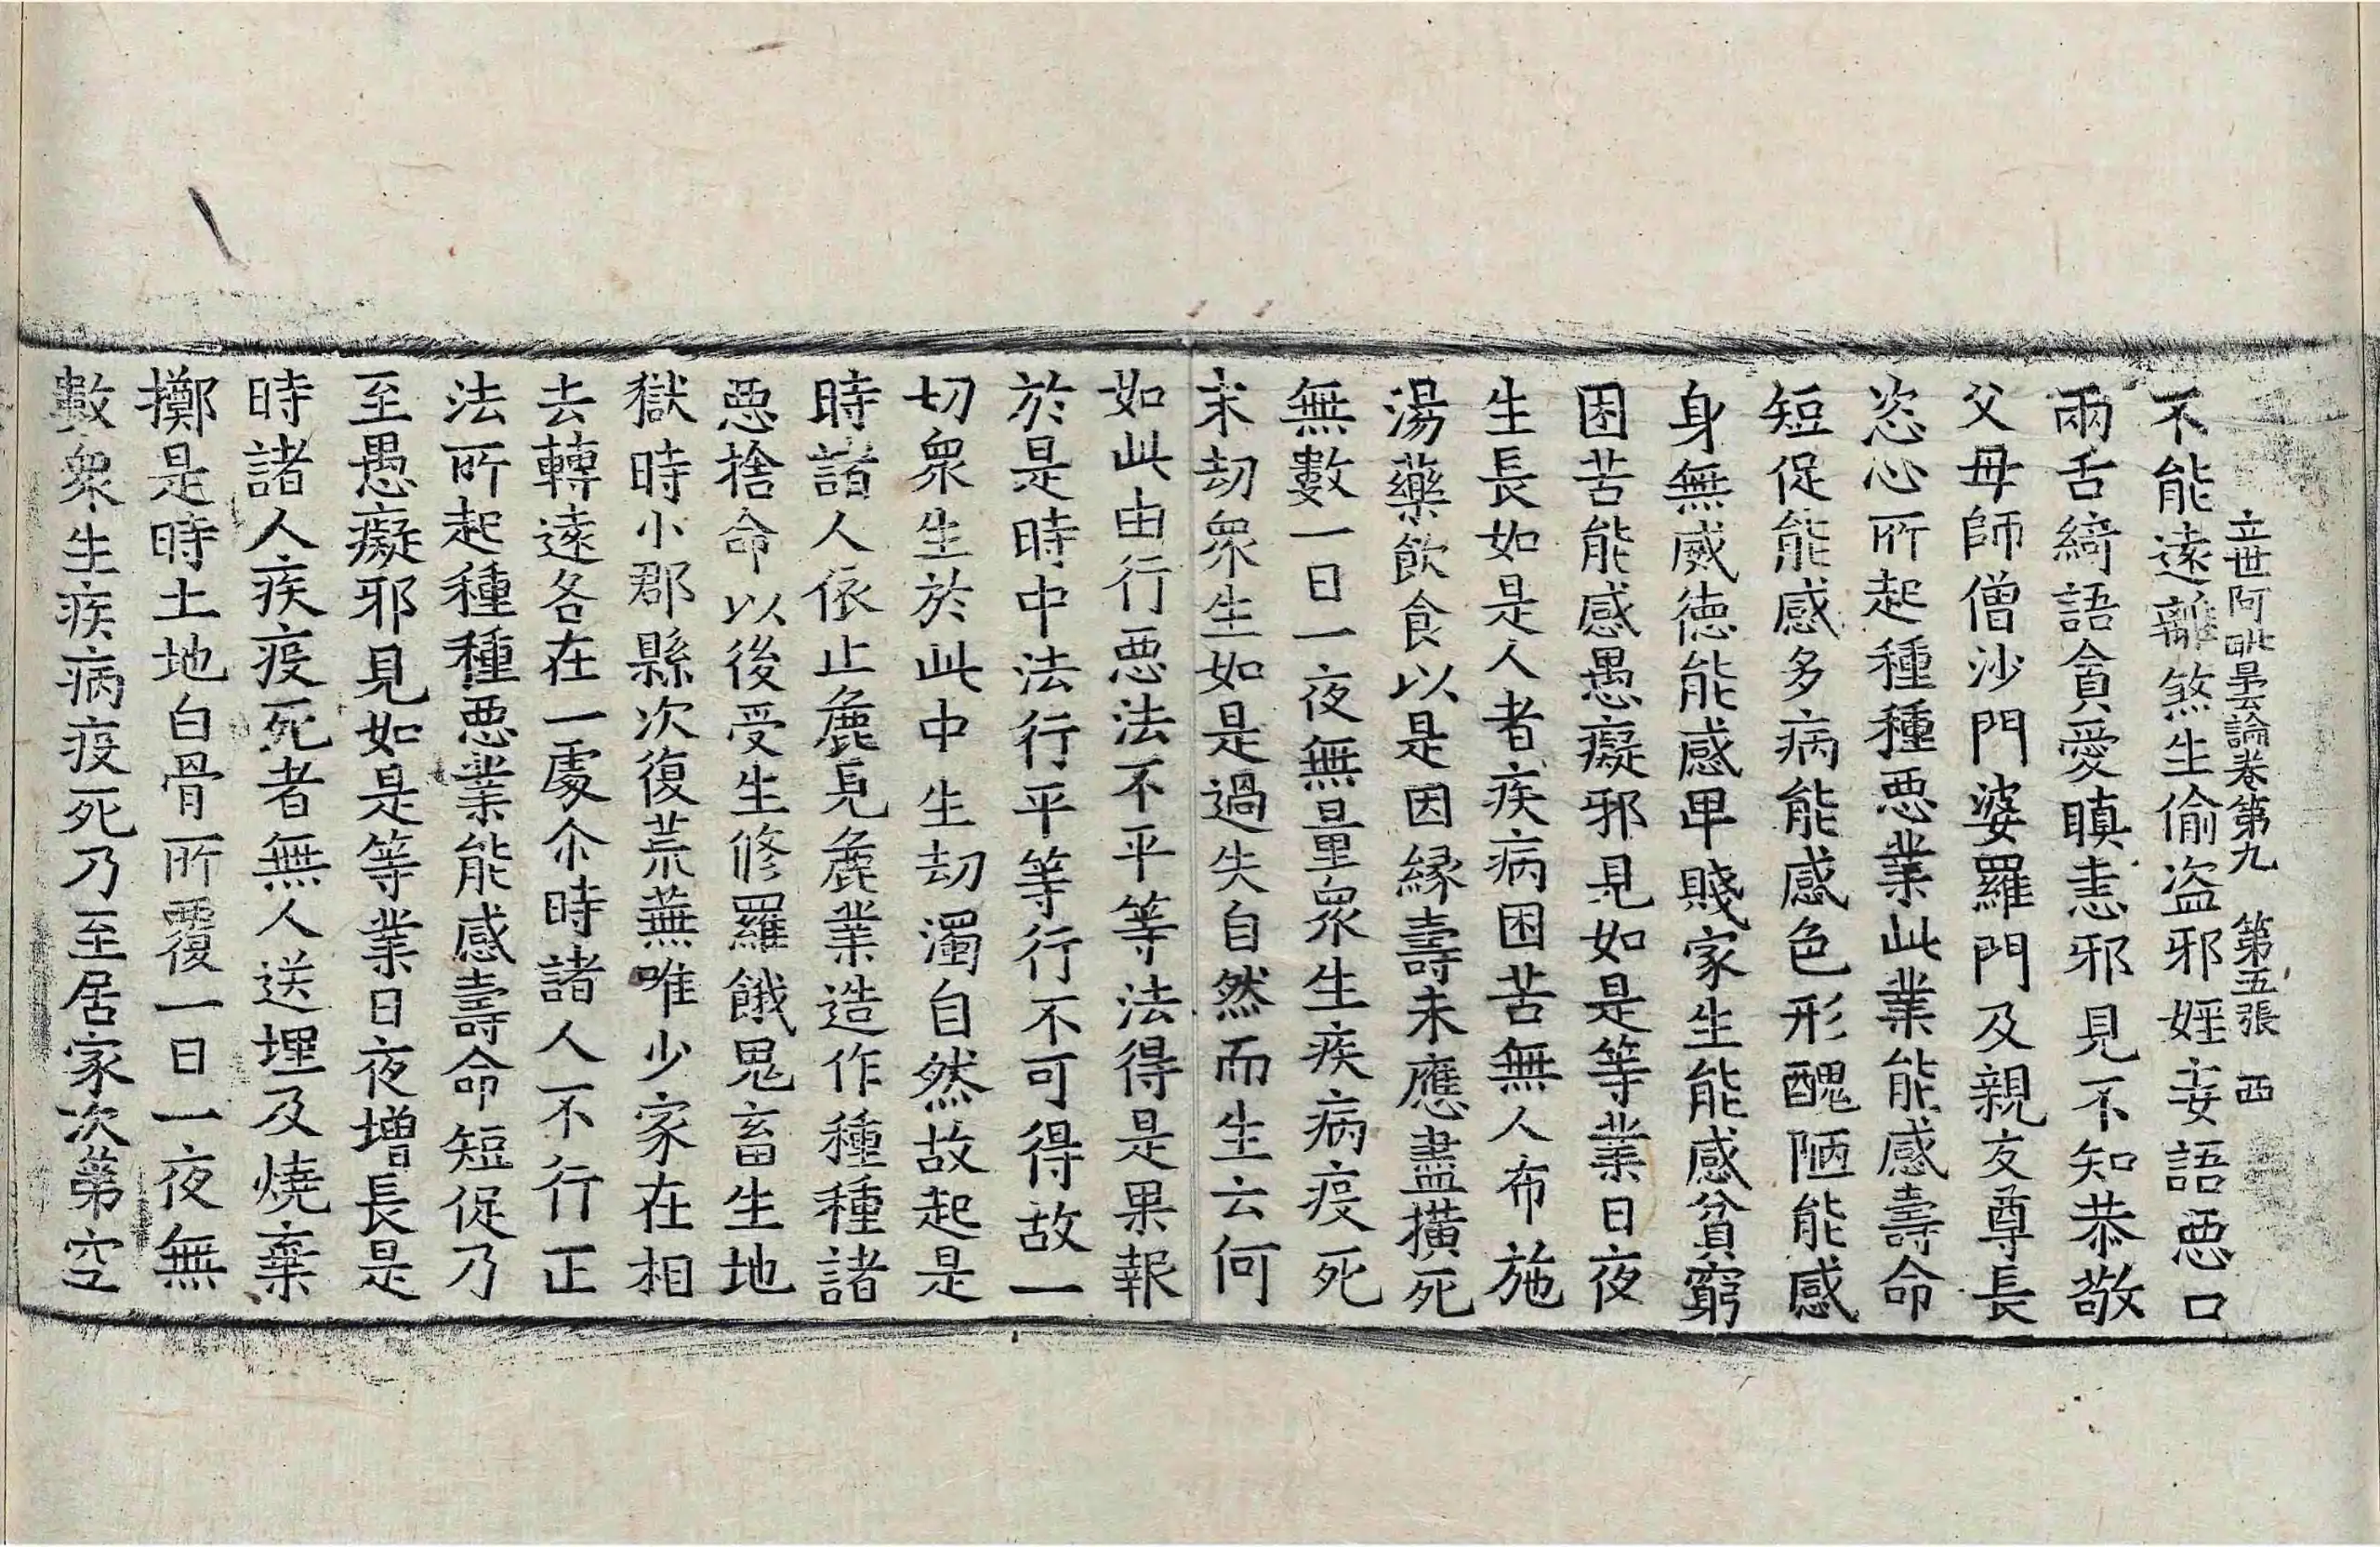 立世阿毗曇論卷第九　第五張　西
不能遠離煞生偷盗邪婬妄語恶口
兩舌綺語貪愛瞋恚邪見不知恭敬
父母師僧沙門婆羅門及親友尊長
恣心所起種種恶業此業能感壽命
短促能感多病能感色形醜陋能感
身無威德能感卑賤家生能感貧窮
困苦能感愚癡邪見如是等業日夜
生長如是人者疾病困苦無人布施
湯藥飲食以是因緣壽未應盡撗死
無數一日一夜無量衆生疾病疫死
末劫衆生如是過失自然而生云何
如此由行恶法不平等法得是果報
於是時中法行平等行不可得故一
切衆生於此中生劫濁自然故起是
時諸人依止麁見麁業造作種種諸
恶捨命以後受生修羅餓鬼畜生地
獄時小郡縣次復荒蕪唯少家在相
去轉遠各在一處尒時諸人不行正
法所起種種恶業能感壽命短促乃
至愚癡邪見如是等業日夜增長是
時諸人疾疫死者無人送埋及燒棄
擲是時土地白骨所覆一日一夜無
數衆生疾病疫死乃至居家次第空